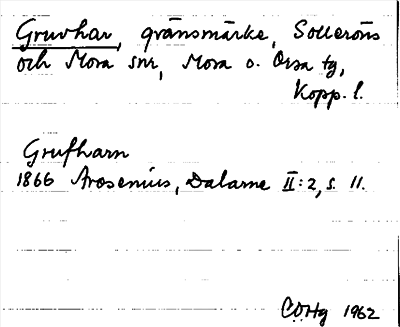 Gruvhar, gränsmärke, Solleröns
och Mora snr, Mora o. Orsa tg,
Kopp. l.
Grufharn
1866 Arosenius, Dalarne II:2, s. 11.
COHg 1962